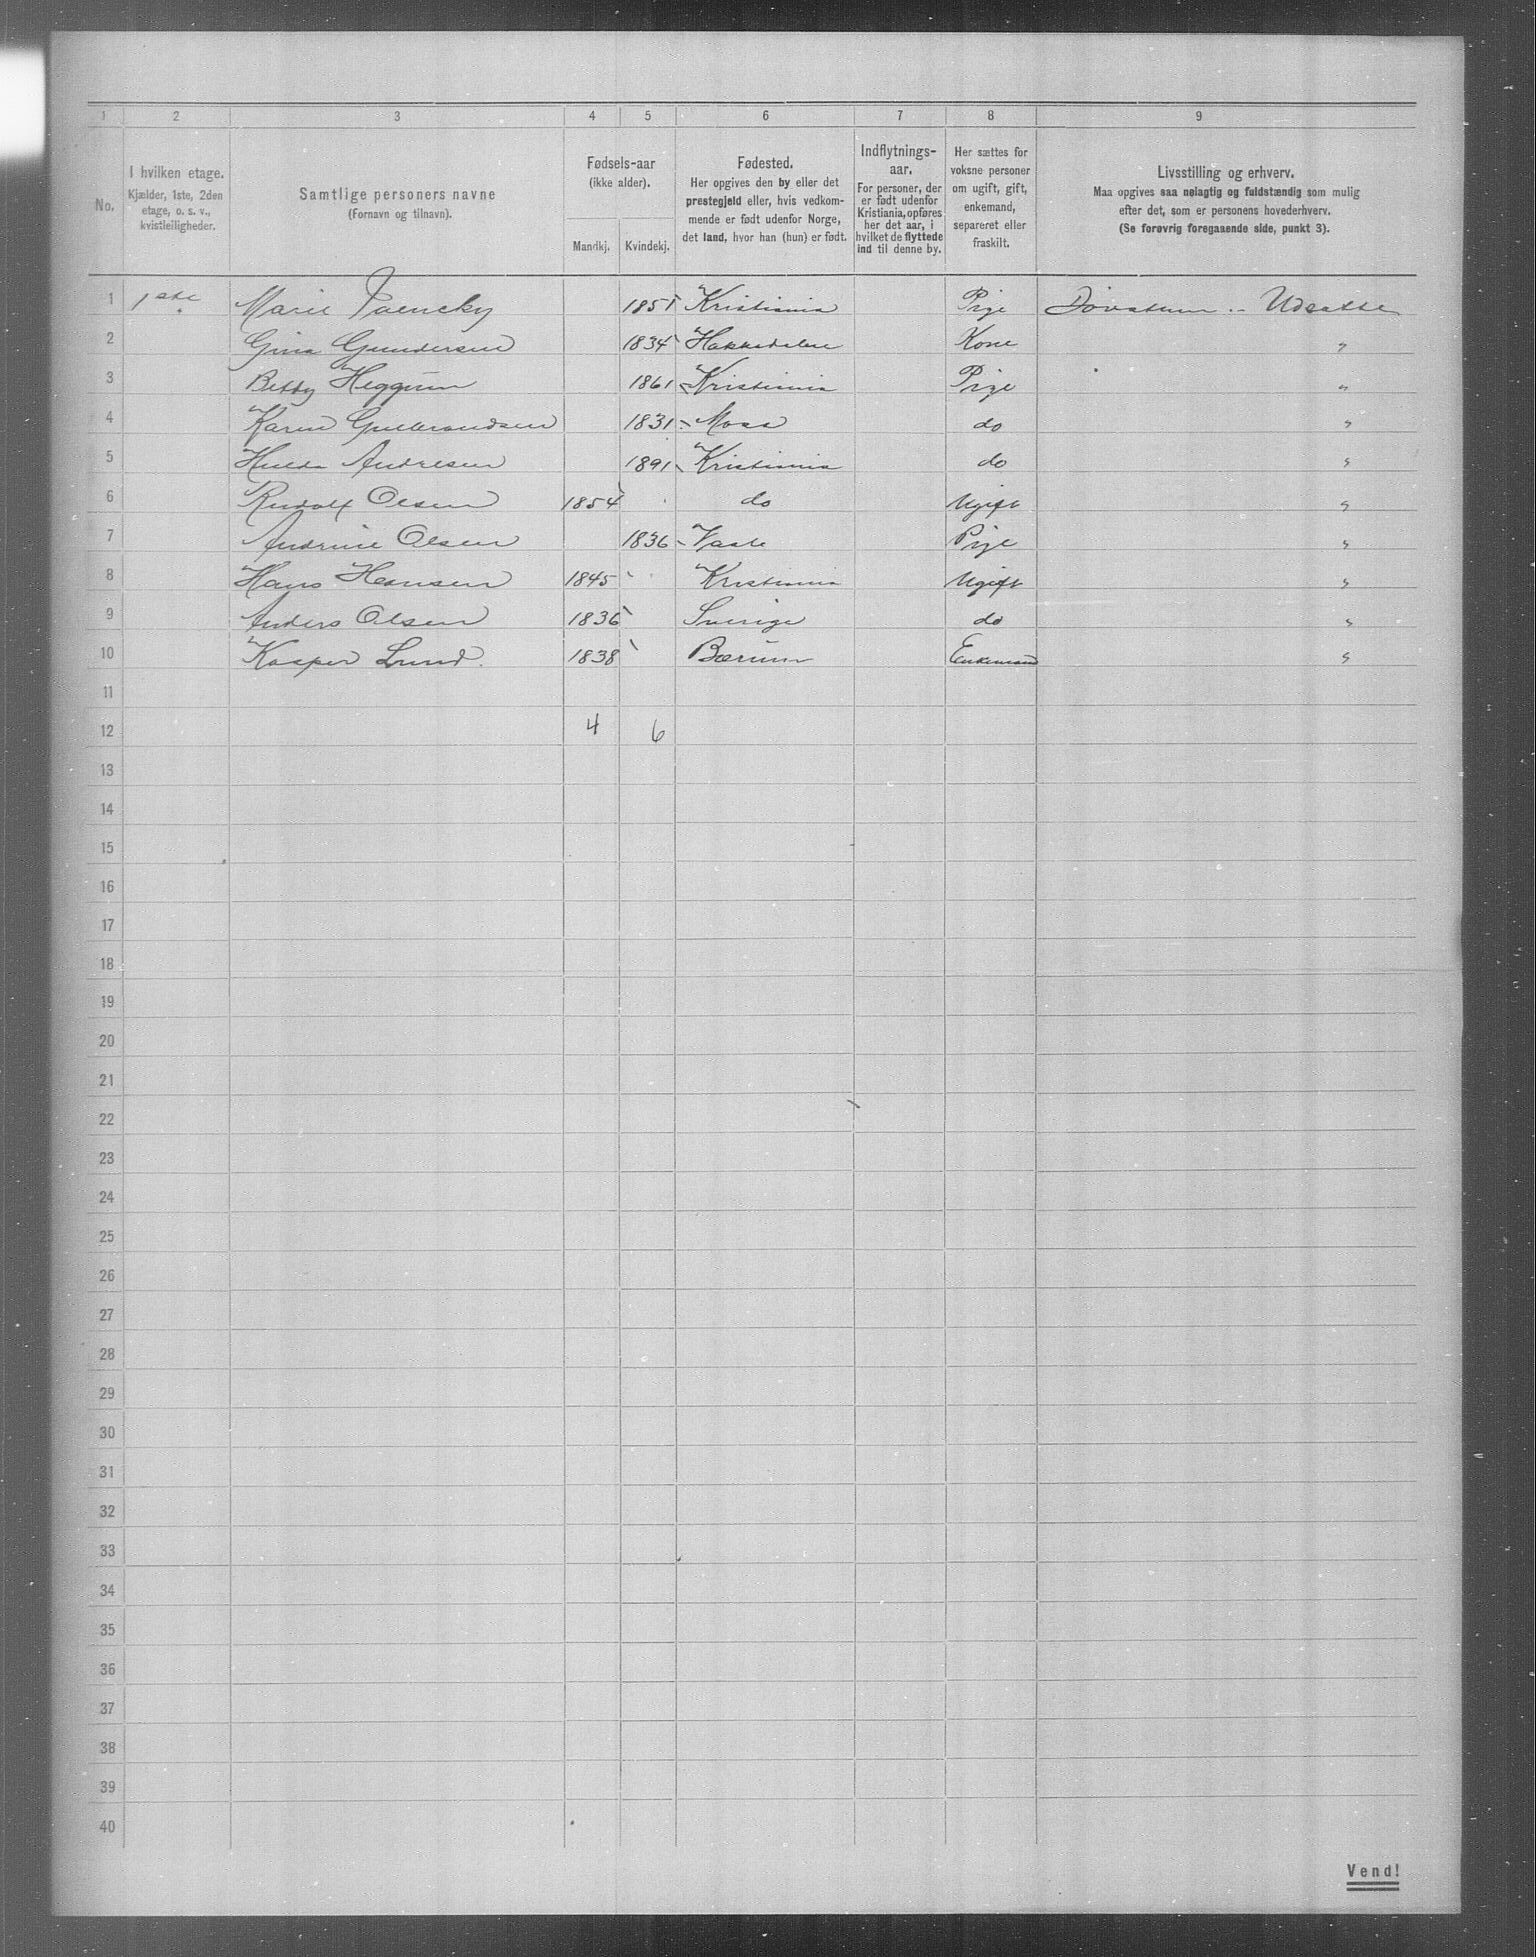 1 2 3 4 5 6 7 8 9
No.
I hvilken etage.
Kjælder, 1ste, 2den
etage, o. s. v.,
kvistleiligheder.
Samtlige personers navne
(Fornavn og tilnavn).
Fødsels-aar
(ikke alder).
Mandkj. Kvindekj.
Fødested.
Her opgives den by eller det
prestegjeld eller, hvis vedkom-
mende er født udenfor Norge,
det land, hvor han (hun) er født.
Indflytnings-
aar.
For personer, der
er født udenfor
Kristiania, opføres
her det aar, i
hvilket de flyttede
ind til denne by.
Her sættes for
voksne personer
om ugift, gift,
enkemand,
separeret eller
fraskilt.
Livsstilling og erhverv.
Maa opgives saa nøiagtig og fuldstændig som mulig
efter det, som er personens hovederhverv.
(Se forøvrig foregaaende side, punkt 3).
1 1ste Marie 1851 Kristiania Pige Udsatte
2 Gina Gundersen 1834 Hakkedalen Kone "
3 Betty Heggum 1861 Kristiania Pige "
4 Karen Gulbrandsen 1831 Moss do "
5 Hulda Andresen 1891 Kristiania do "
6 Rudolf Olsen 1854 do Ugift "
7 Andrine Olsen 1836 Pige "
8 Hans Hansen 1845 Kristiania Ugift "
9 Anders Olsen 1836 Sverige do "
10 Kasper Lund. 1838 Bærum Enkemand "
11
12 4 6
13
14
15
16
17
18
19
20
21
22
23
24
25
26
27
28
29
30
31
32
33
34
35
36
37
38
39
40
Vend!